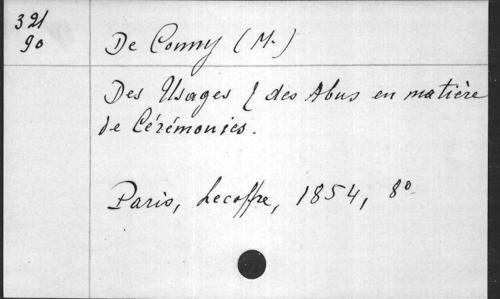 321
90
De Conny (M.)
Des Usages & des Abus en matière
de Cérémonies.
Paris, Lecoffre, 1854, 8º